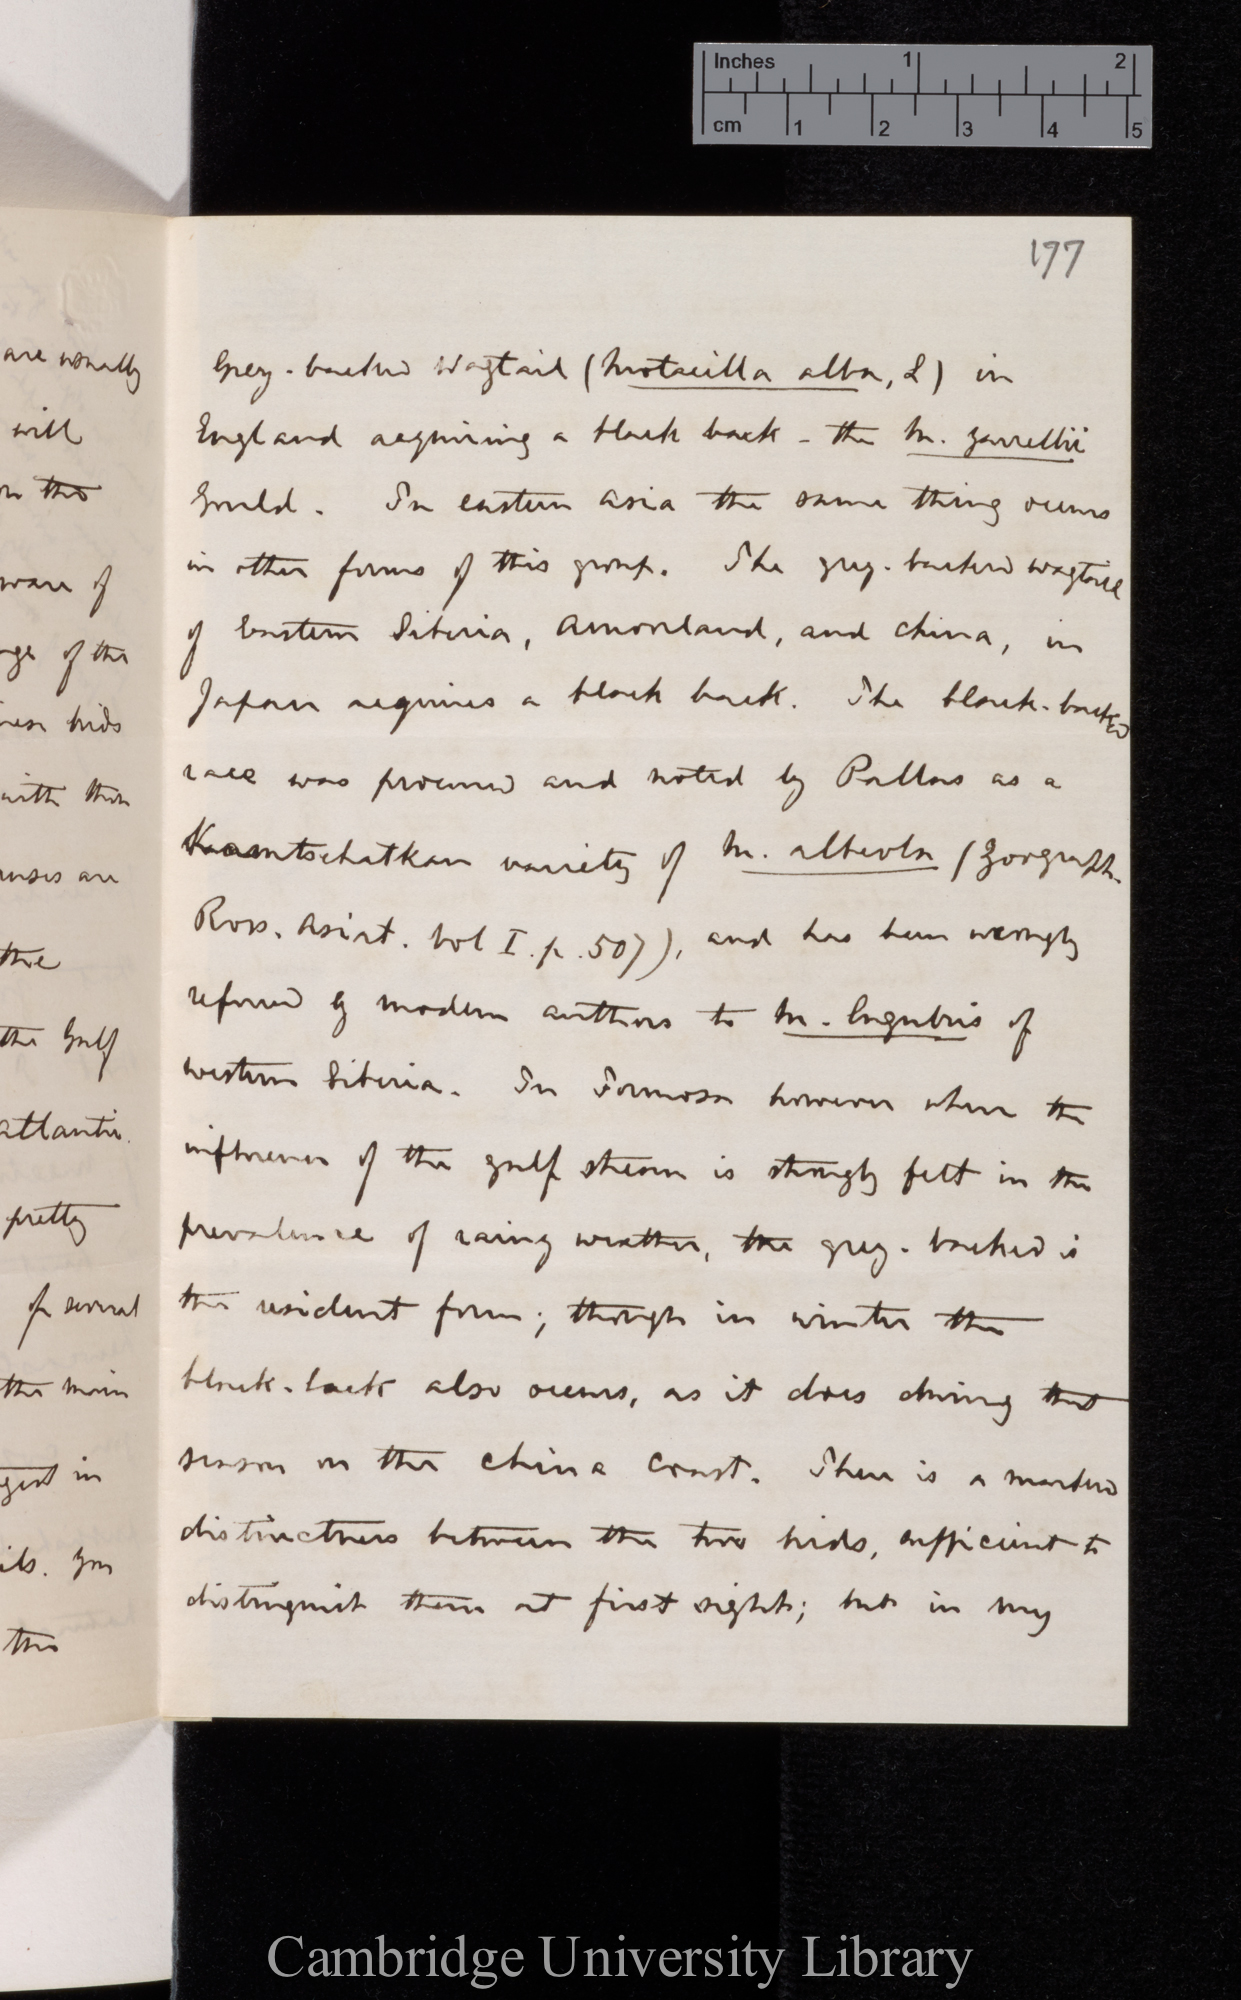 Inches 1 2
cm 1 2 3 4 5
177
are usually
will
on the
aware of
of the
birds
with their
are
the
the Gulf
atlantic.
pretty
of several
the main
in
You
the
Grey-backed Wagtail (Motacilla alba, L) in
England acquiring a black back - the M. Yarrellii
Gould. In eastern Asia the same thing occurs
in other forms of this group. The grey-backed wagtail
of Eastern Siberia, Amoorland, and China, in
Japan acquires a black back. The black-backed
race was procured and noted by Pallas as a
Kamtschatkan variety of M. albeola (Zoograph.
Ross. Asiat. Vol I. p. 507), and has been wrongly
referred by modern authors to M. lugubris of
western Siberia. In Formosa however where the
influence of the gulf stream is strongly felt in the
prevalence of rainy weather, the grey-backed is
the resident form; though in winter the
black-back also occurs, as it does during that
season on the China Coast. There is a marked
distinctness between the two birds, sufficient to
distinguish them at first sight; but in my
Cambridge University Library